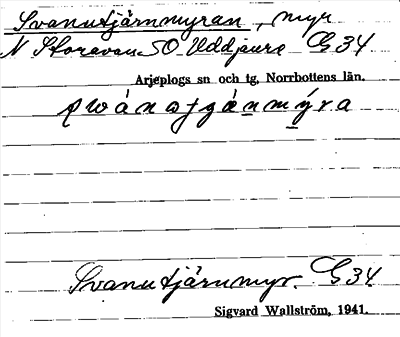 Svanutjärnmyran, myr
N Storavan SO Uddjaure G34
Arjeplogs sn och tg, Norrbottens län.
Svanutjärnmyr. G34
Sigvard Wallström, 1941.